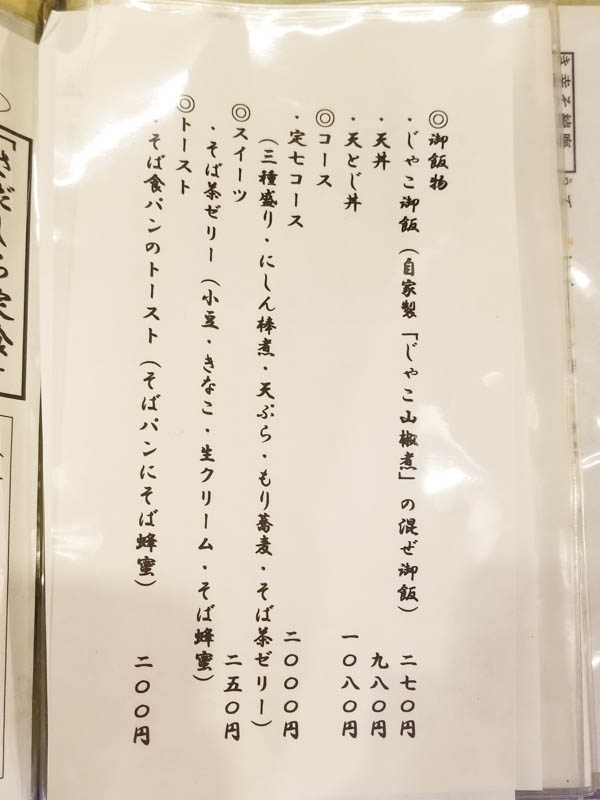 ◎御飯物
・じゃこ御飯（自家製「じゃこ山椒煮」の混ぜ御飯） 二七〇円
・天丼 九八〇円
・天とじ丼 一〇八〇円
◎コース
・定七コース 二〇〇〇円
（三種盛り・にしん棒煮・天ぷら・もり蕎麦・そば茶ゼリー）
◎スイーツ
・そば茶ゼリー（小豆・きなこ・生クリーム・そば蜂蜜） 二五〇円
◎トースト
・そば食パンのトースト（そばパンにそば蜂蜜） 二〇〇円